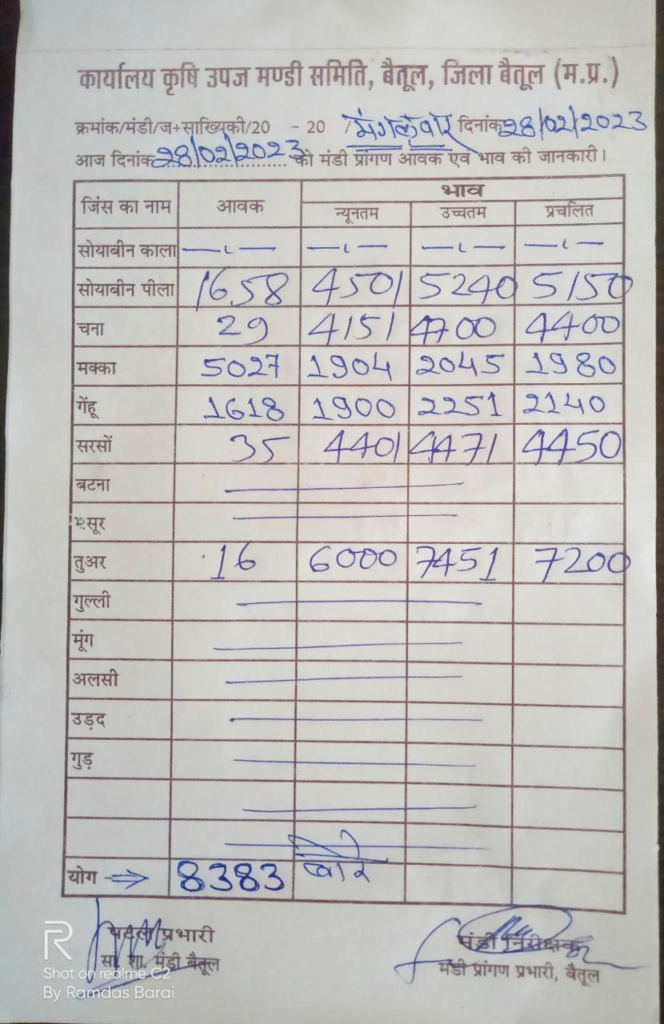 कार्यालय कृषि उपज मण्डी समिति, बैतूल, जिला बैतूल (म.प्र.)
क्रमांक/मंडी/ज+साख्यिकी/20 - 20 / मंगलवार दिनांक 28/02/2023
आज दिनांक 28/02/2023 को मंडी प्रांगण आवक एवं भाव की जानकारी।
जिंस का नाम आवक भाव
न्यूनतम उच्चतम प्रचलित
सोयाबीन काला —ι— —ι— —ι— —ι—
सोयाबीन पीला 1658 4501 5240 5150
चना 29 4151 4700 4400
मक्का 5027 1904 2045 1980
गेंहू 1618 1900 2251 2140
सरसों 35 4401 4471 4450
बटना
मसूर
तुअर 16 6000 7451 7200
गुल्ली
मूंग
अलसी
उड़द
गुड़
योग → 8383 बोरे
प्रभारी मंडी निरीक्षक
सा. शा. मंडी बैतूल मंडी प्रांगण प्रभारी, बैतूल
R
Shot on realme C2
By Ramdas Barai